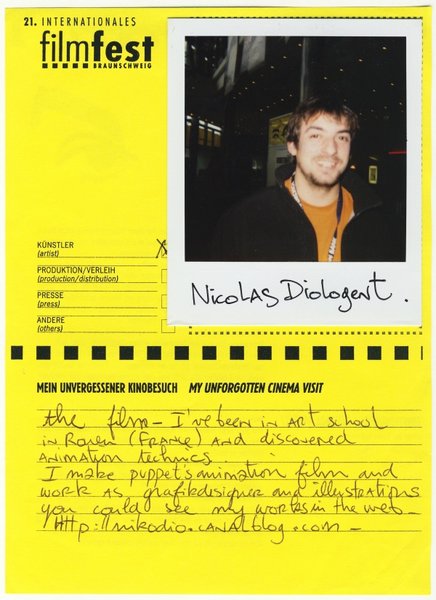 21. INTERNATIONALES
filmfest
BRAUNSCHWEIG
KÜNSTLER
(artist)
PRODUKTION/VERLEIH
(production/distribution)
PRESSE
(press)
ANDERE
(others)
NicoLAS Diologent.
MEIN UNVERGESSENER KINOBESUCH MY UNFORGOTTEN CINEMA VISIT
the film - I've been in ART school
in Rouen (FRANCE) AND discovered
ANIMATION technics.
I make puppet's animation film and
work as grafikdesigner and illustrations
you could see my workes in the web -
HTTp://nikodio.CANALblog.com -